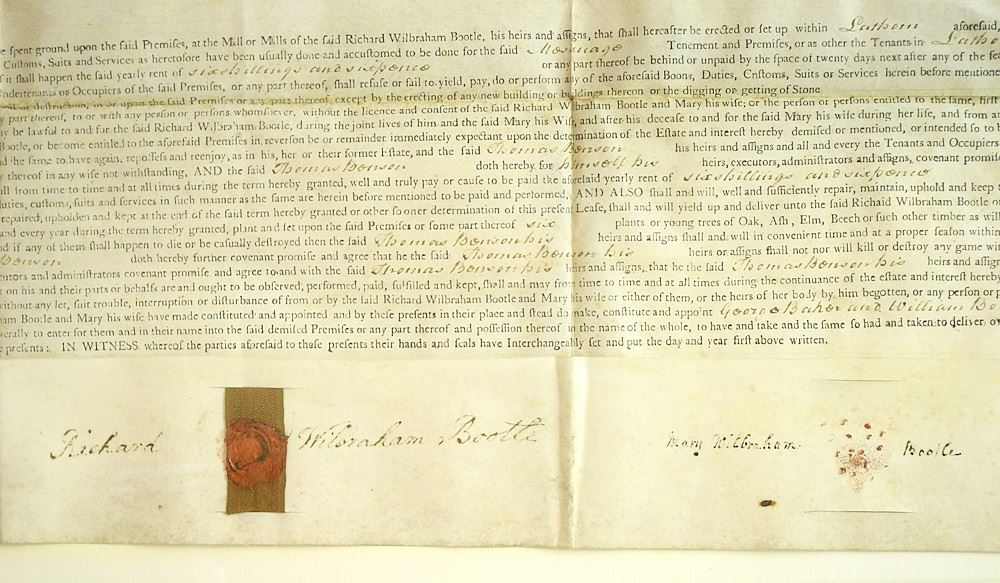 e spent ground upon the said Premises, at the Mill or Mills of the said Richard Wilbraham Bootle, his heirs and assigns, that shall hereafter be erected or set up within Lathom aforesaid,
Customs, Suits and Services as heretofore have been usually done and accustomed to be done for the said Messuage Tenement and Premises, or as other the Tenants in Latho
if it shall happen the said yearly rent of sixshillings and sixpence or any part thereof be behind or unpaid by the space of twenty days next after any of the
Undertenants or Occupiers of the said Premises, or any part thereof, shall refuse or fail to yield, pay, do or perform any of the aforesaid Boons, Duties, Cnstoms, Suits or Services herein before mentione
or destruction, in or upon the said Premises or any part thereof, except by the erecting of any new building or buildings thereon or the digging or getting of Stone
y part thereof, to or with any person or persons whomsoever, without the licence and consent of the said Richard Wilbraham Bootle and Mary his wife; or the person or persons entitled to the same, first
ay be lawful to and for the said Richard Wilbraham Bootle, during the joint lives of him and the said Mary his Wife, and after his decease to and for the said Mary his wife during her life, and from
Bootle, or become entitled to the aforesaid Premises in reversion be or remainder immediately expectant upon the determination of the Estate and interest hereby demised or mentioned, or intended so to b
nd the same to have again, repossess and reenjoy, as in his, her or their former Estate, and the said Thomas Benson his heirs and assigns and all and every the Tenants and Occupiers
y thereof in any wise not withstanding, AND the said Thomas Benson doth hereby for himself his heirs, executors, administrators and assigns, covenant promis
all from time to time and at all times during the term hereby granted, well and truly pay or cause to be paid the aforesaid yearly rent of sixshillings and sixpence
duties, customs, suits and services in such manner as the same are herein before mentioned to be paid and performed, AND ALSO shall and will, well and sufficiently repair, maintain, uphold and keep
repaired, upholden and kept at the end of the said term hereby granted or other sooner determination of this present Lease, shall and will yield up and deliver unto the said Richaid Wilbraham Bootle
and every year during the term hereby granted, plant and set upon the said Premises or some part thereof six plants or young trees of Oak, Ash, Elm, Beech or such other timber as will
nd if any of them shall happen to die or be casually destroyed then the said Thomas Benson his heirs and assigns shall and will in convenient time and at a proper season within
Benson doth hereby further covenant promise and agree that he the said Thomas Benson his heirs or assigns shall not nor will kill or destroy any game
cutors and administrators covenant promise and agree to and with the said Thomas Benson his heirs and assigns, that he the said Thomas Benson his heirs and assign
on his and their parts or behalfs are and ought to be observed, performed, paid, fulfilled and kept, shall and may from time to time and at all times during the continuance of the estate and interest hereby
without any let, suit trouble, interruption or disturbance of from or by the said Richard Wilbraham Bootle and Mary his wife or either of them, or the heirs of her body by him begotten, or any person or p
ham Bootle and Mary his wife have made constituted and appointed and by these presents in their place and stead do make, constitute and appoint George Baker and William Bo
erally to enter for them and in their name into the said demised Premises or any part thereof and possession thereof in the name of the whole, to have and take and the same so had and taken to deliver
e presents: IN WITNESS whereof the parties aforesaid to these presents their hands and seals have Interchangeably set and put the day and year first above written.
Richard Wilbraham Bootle Mary Wilbraham Bootle